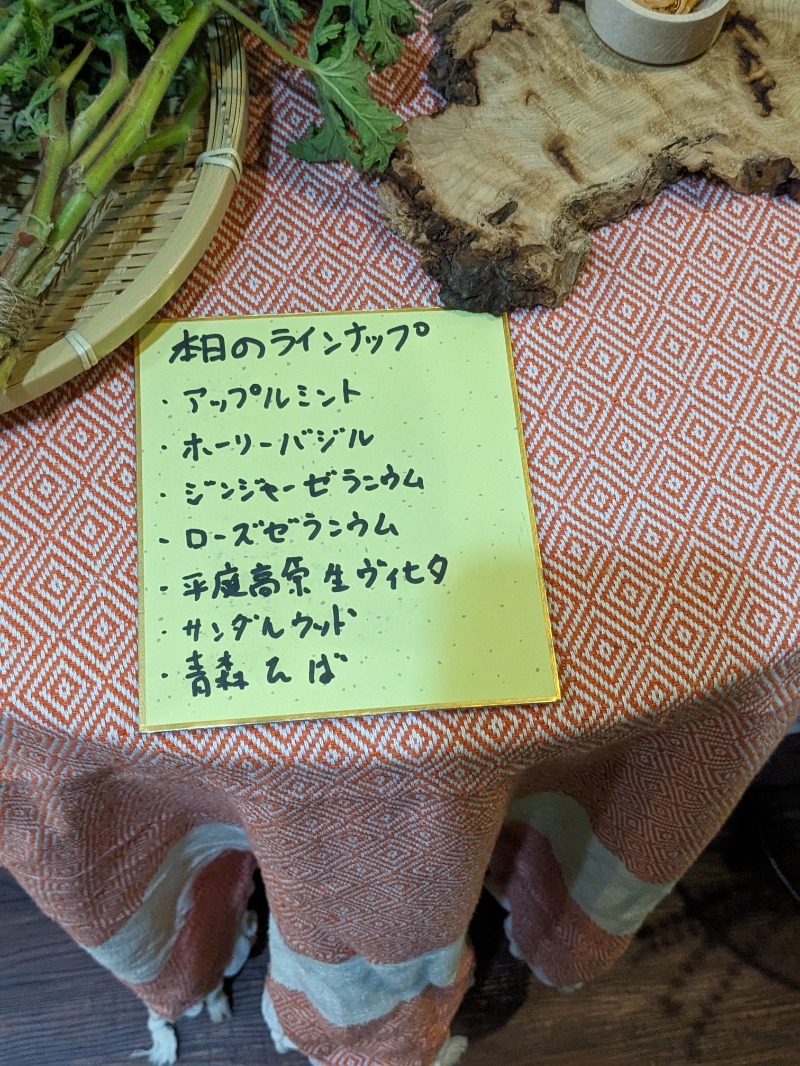 本日のラインナップ
・アップルミント
・ホーリーバジル
・ジンジャーゼラニウム
・ローズゼラニウム
・平庭高原 生ヴィヒタ
・サンダルウッド
・青森ひば